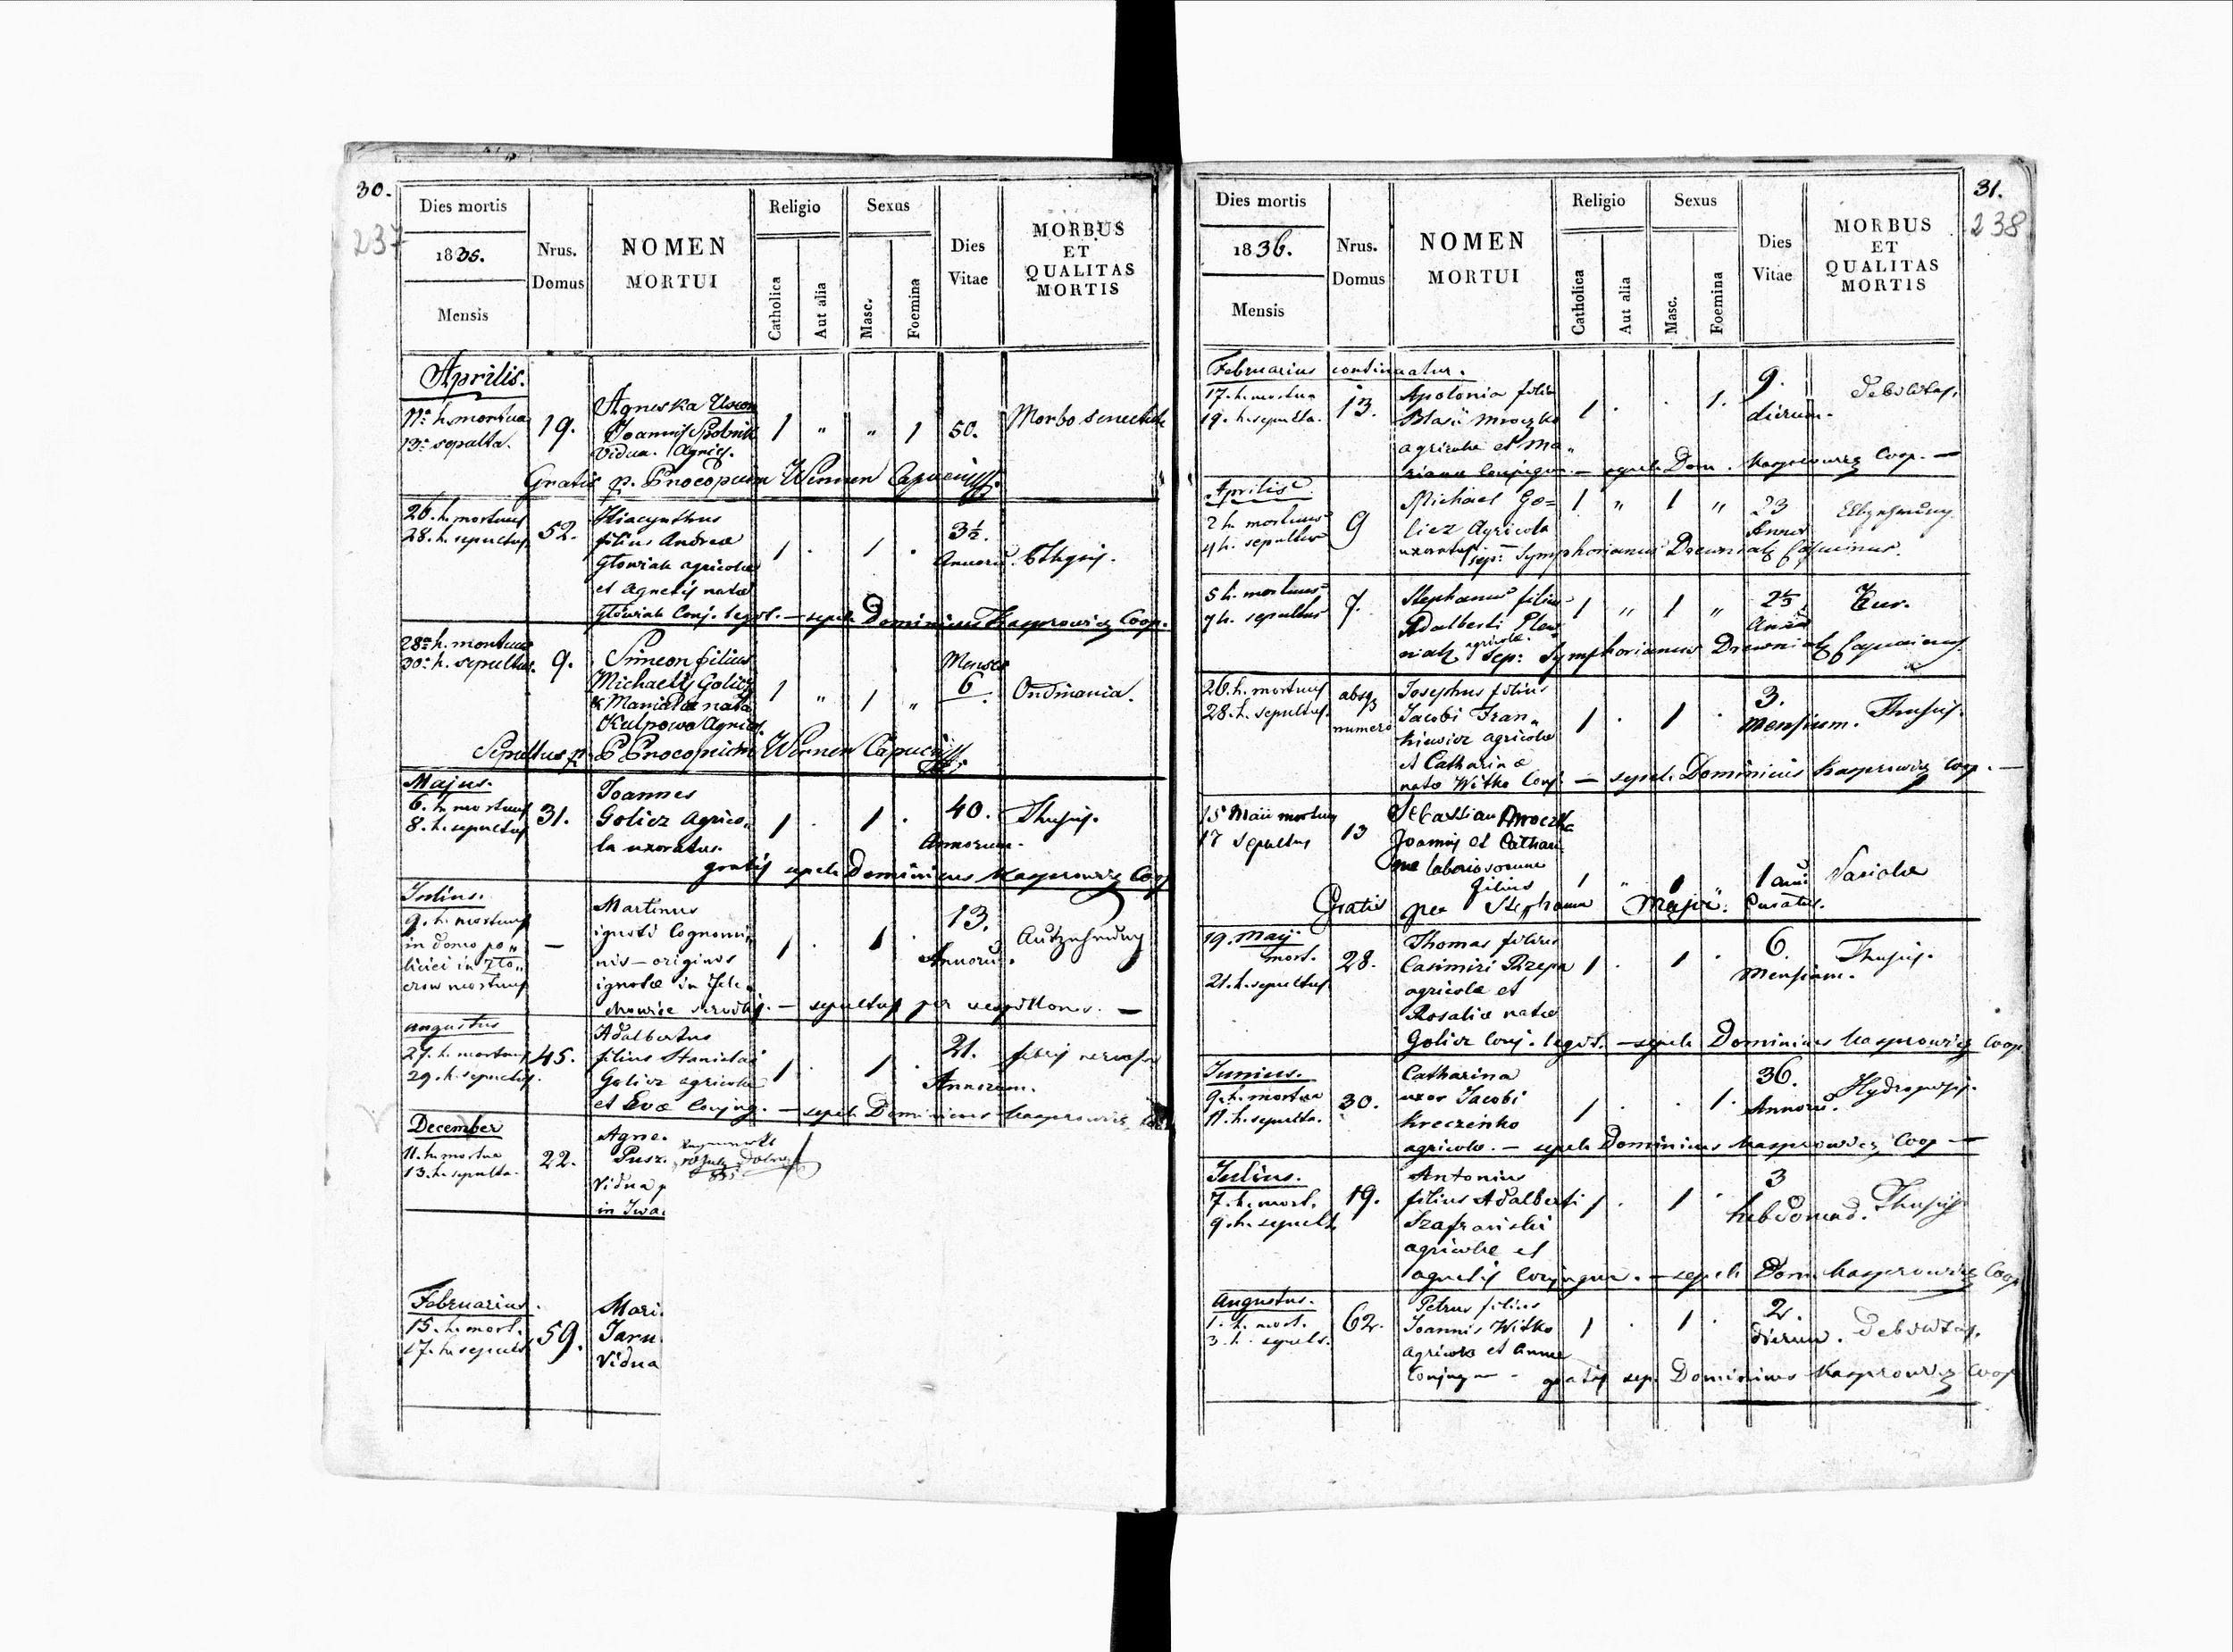 30.
237
Dies mortis
1835.
Mensis
Nrus.
Domus
NOMEN
MORTUI
Religio
Catholica
Aut alia
Sexus
Masc.
Foemina
Dies
Vitae
MORBUS
ET
QUALITAS
MORTIS
Aprilis.
11a h. mortua
13a sepulta.
19.
Agneska
Joannis
Vidua.
1 " " 1
50.
Morbo
Gratis p. Procopium
26. h. mortuus
28. h. sepultus
52.
Hiacynthus
filius Andreae
Głowiak agricolae
et Agnetis natae
Głowiak Conj. legit. — sepel. Dominicus Kasprowicz Coop.
1 . 1 .
3½.
Annoru.
28a h. mortuus
30a h. sepultus.
9.
Simeon filius
Michaelis Golicz
& Marianna nata
1 " 1 "
Menses
6
Sepultus p. P. Procopium
Majus.
6. h. mortuus
8. h. sepultus
31.
Joannes
Golicz agrico„
la uxoratus.
1 . 1 .
40.
Annorum.
Thusis.
gratis sepel. Dominicus Kasprowicz Coop
Julius.
9. h. mortuus
in domo po„
—
Martinus
ignoti Cognomi„
nis — originis
ignotae in
— sepultus per vespillones. —
1 . 1 .
13.
Annoru.
Augustus
27. h. mortuus
29. h. sepultus.
45.
Adalbertus
filius Stanislai
Golicz agricolae
et Evae Conjug. — sepel. Dominicus Kasprowicz
1 . 1 .
21.
Annorum.
febris nervosa
December
11. h. mortua
13. h. sepulta.
22.
Agne.
Pusz.
Vidua
in Iwa.
Februarius.
15. h. mort.
17. h. sepult.
59.
Mari.
Jaru
Vidua
31.
238
Dies mortis
1836.
Mensis
Nrus.
Domus
NOMEN
MORTUI
Religio
Catholica
Aut alia
Sexus
Masc.
Foemina
Dies
Vitae
MORBUS
ET
QUALITAS
MORTIS
Februarius continuatur.
17. h. mortua
19. h. sepulta.
13.
Apolonia filia
Blasii Mroczko
agricolae et Ma„
rianae Conjugum. — sepel. Dom. Kasprowicz Coop. —
1 . . 1.
9.
dierum.
Debilitas.
Aprilis
2 h. mortuus
4 h. sepultus
9
Michael Go=
licz Agricola
uxoratus sep: Symphorianus Drewniak
1 " 1 "
23
Annor
5 h. mortuus
7 h. sepultus
7.
Stephanus filius
Adalberti Plew
niak agricolae.
Sep: Symphorianus Drewniak
1 " 1 "
26. h. mortuus
28. h. sepultus.
absq
numero
Josephus filius
Jacobi Fran„
kiewicz agricolae
et Catharinae
natae Witko Conj. — sepel. Dominicus Kasprowicz Coop. —
1 . 1 .
3.
Mensium.
Thusis.
15 Maii mortuus
17 Sepultus
13
Sebastian Mroczka
Joannis et Cathari
nae laboriosorum
filius
1 " 1
1 anni
Variolae
Gratis per Stephanum Curatus.
19. Maij
mort.
21. h. sepultus
28.
Thomas filius
Casimiri Rzepa
agricolae et
Rosaliae natae
Golicz Conj. legit. — sepel. Dominicus Kasprowicz Coop
1 . 1 .
6.
Mensium.
Thusis.
Junius.
9. h. mortua
11. h. sepulta.
30.
Catharina
uxor Jacobi
Kreczenko
agricolae. — sepel. Dominicus Kasprowicz Coop —
1 . . 1.
36.
Annoru.
Hydropsis.
Julius.
7. h. mort.
9. h. sepult.
19.
Antonius
filius Adalberti
Szafrański
agricolae et
Agnetis Conjugum. — sepel. Dom. Kasprowicz Coop
1 . 1 .
3
hebdomad.
Thusis
Augustus.
1. h. mort.
3. h. sepult.
62.
Petrus filius
Joannis Witko
agricolae et Annae
Conjugum — gratis sep. Dominicus Kasprowicz Coop
1 . 1 .
2.
dierum.
Debilitas.